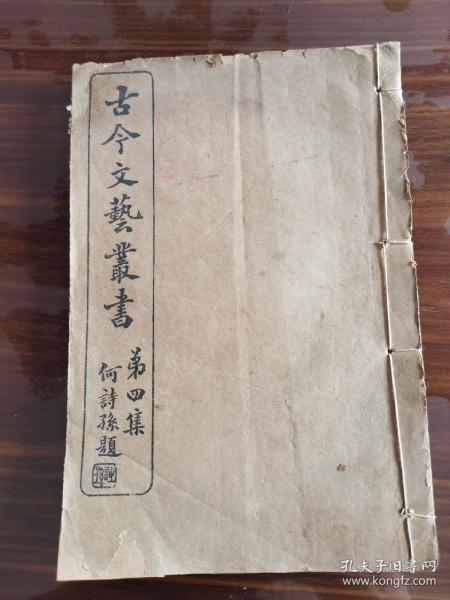 古今文藝叢書
第四集
何詩孫題
孔夫子旧书网
www.kongfz.com